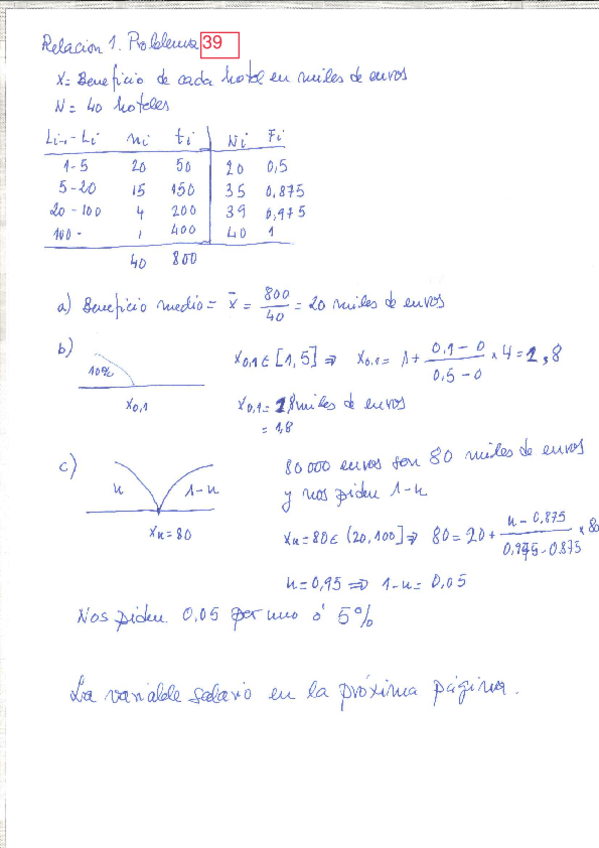 Relacion 1. Problema 39
X = Beneficio de cada hotel en miles de euros
N = 40 hoteles
Li-1 - Li ni ti Ni Fi
1-5 20 50 20 0,5
5-20 15 150 35 0,875
20-100 4 200 39 0,975
100- 1 400 40 1
40 800
a) Beneficio medio = x̄ = 800/40 = 20 miles de euros
b) 10% x0,1
x0,1 ∈ [1,5] ⇒ x0,1 = 1 + (0,1-0)/(0,5-0) × 4 = 1,8
x0,1 = 1,8 miles de euros
= 1,8
c) u 1-u xu = 80
80000 euros son 80 miles de euros
y nos piden 1-u
xu = 80 ∈ (20,100] ⇒ 80 = 20 + (u-0,875)/(0,975-0,875) × 80
u = 0,95 ⇒ 1-u = 0,05
Nos piden 0,05 por uno ó 5%
La variable salario en la próxima página.